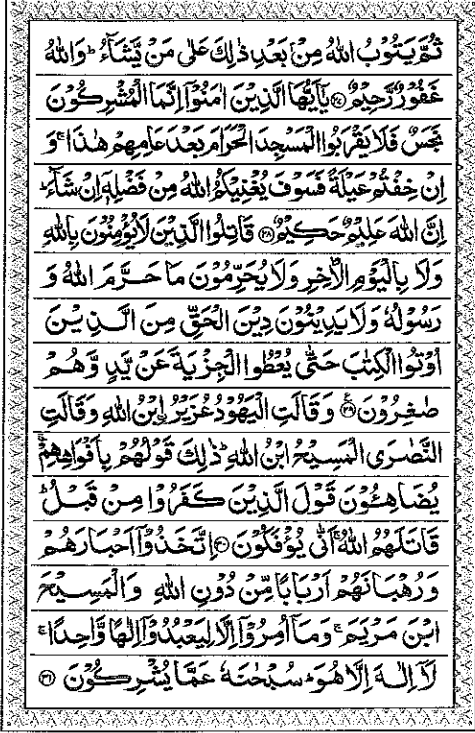 ثُمَّ يَتُوْبُ اللّٰهُ مِنْۢ بَعْدِ ذٰلِكَ عَلٰى مَنْ يَّشَآءُ ؕ وَاللّٰهُ
غَفُوْرٌ رَّحِيْمٌ ﴿۲۷﴾ يٰۤاَيُّهَا الَّذِيْنَ اٰمَنُوْۤا اِنَّمَا الْمُشْرِكُوْنَ
نَجَسٌ فَلَا يَقْرَبُوا الْمَسْجِدَ الْحَرَامَ بَعْدَ عَامِهِمْ هٰذَا ۚ وَ
اِنْ خِفْتُمْ عَيْلَةً فَسَوْفَ يُغْنِيْكُمُ اللّٰهُ مِنْ فَضْلِهٖۤ اِنْ شَآءَ ؕ
اِنَّ اللّٰهَ عَلِيْمٌ حَكِيْمٌ ﴿۲۸﴾ قَاتِلُوا الَّذِيْنَ لَا يُؤْمِنُوْنَ بِاللّٰهِ
وَلَا بِالْيَوْمِ الْاٰخِرِ وَلَا يُحَرِّمُوْنَ مَا حَرَّمَ اللّٰهُ وَ
رَسُوْلُهٗ وَلَا يَدِيْنُوْنَ دِيْنَ الْحَقِّ مِنَ الَّذِيْنَ
اُوْتُوا الْكِتٰبَ حَتّٰى يُعْطُوا الْجِزْيَةَ عَنْ يَّدٍ وَّهُمْ
صٰغِرُوْنَ ﴿۲۹﴾ وَقَالَتِ الْيَهُوْدُ عُزَيْرُ ِۨابْنُ اللّٰهِ وَقَالَتِ
النَّصٰرَى الْمَسِيْحُ ابْنُ اللّٰهِ ؕ ذٰلِكَ قَوْلُهُمْ بِاَفْوَاهِهِمْ ۚ
يُضَاهِـُٔوْنَ قَوْلَ الَّذِيْنَ كَفَرُوْا مِنْ قَبْلُ ؕ
قَاتَلَهُمُ اللّٰهُ ۚ اَنّٰى يُؤْفَكُوْنَ ﴿۳۰﴾ اِتَّخَذُوْۤا اَحْبَارَهُمْ
وَرُهْبَانَهُمْ اَرْبَابًا مِّنْ دُوْنِ اللّٰهِ وَالْمَسِيْحَ
ابْنَ مَرْيَمَ ۚ وَمَاۤ اُمِرُوْۤا اِلَّا لِيَعْبُدُوْۤا اِلٰهًا وَّاحِدًا ۚ
لَاۤ اِلٰهَ اِلَّا هُوَ ؕ سُبْحٰنَهٗ عَمَّا يُشْرِكُوْنَ ﴿۳۱﴾